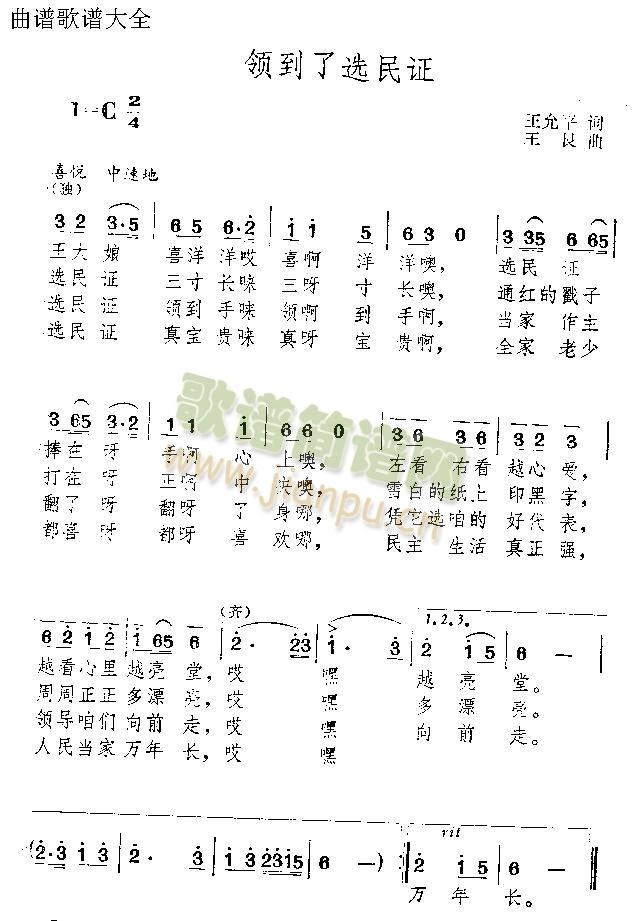 曲谱歌谱大全
领到了选民证
1=C 2/4
王允平 词
王良 曲
喜悦 中速地
(独)
3 2 3·5 6 5 6·2 1 1 5 6 3 0 3 35 6 65
王大娘 喜洋洋哎 喜啊 洋 洋噢, 选民 证
选民证 三寸长咪 三呀 寸 长噢, 通红的戳子
选民证 领到手咪 领啊 到 手啊, 当家 作主
选民证 真宝贵咪 真呀 宝 贵啊, 全家 老少
3 65 3·2 1 1 1 6 6 0 3 6 3 6 3 2 3
捧在 呀 手啊 心 上噢, 左看 右看 越心 爱,
打在 呀 正啊 中 央噢, 雪白的纸上 印黑 字,
翻了 呀 翻呀 了 身哪, 凭它选咱的 好代 表,
都喜 呀 都呀 喜 欢哪, 民主 生活 真正 强,
(齐)
1.2.3.
6 2 1 2 1 65 6 2· 23 1· 3 2 1 5 6 —
越看心里 越亮 堂, 哎 嘿 越亮 堂。
周周正正 多漂 亮, 哎 嘿 多漂 亮。
领导咱们 向前 走, 哎 嘿 向前 走。
人民当家 万年 长, 哎 嘿
rit
(2·3 1 3 2· 3 1 3 2315 6 —) 2 1 5 6 —
万 年 长。
歌谱简谱网
www.jianpu.cn